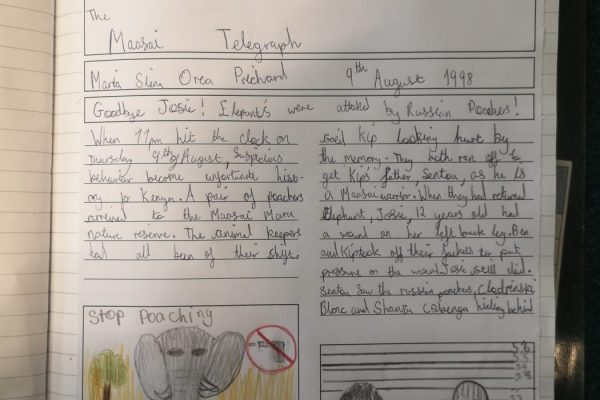 The
Maasai Telegraph
Marta Orea 9th August 1998
Goodbye Josie! Elepants were attaked by Russian Poaches!
When 11pm hit the clock on
Thursday 9th of August, Suspicius
behaviour become unfortunate hist-
ory for Kenya. A pair of poachers
arrived to the Maasai Mara
nature reserve. The animal keepers
had all been of their shift.
said Kip looking hurt by
the memory. They both ran off to
get Kips father, Senteu, as he is
a Maasai warrior. When they had returned
Elephant, Josie, 12 years old had
a wand on her left back leg. Ben
and Kip took off their jackets to put
pressure on the wand. Josie still died.
Senteu saw the russian poaches,
and hiding behind
Stop Poaching